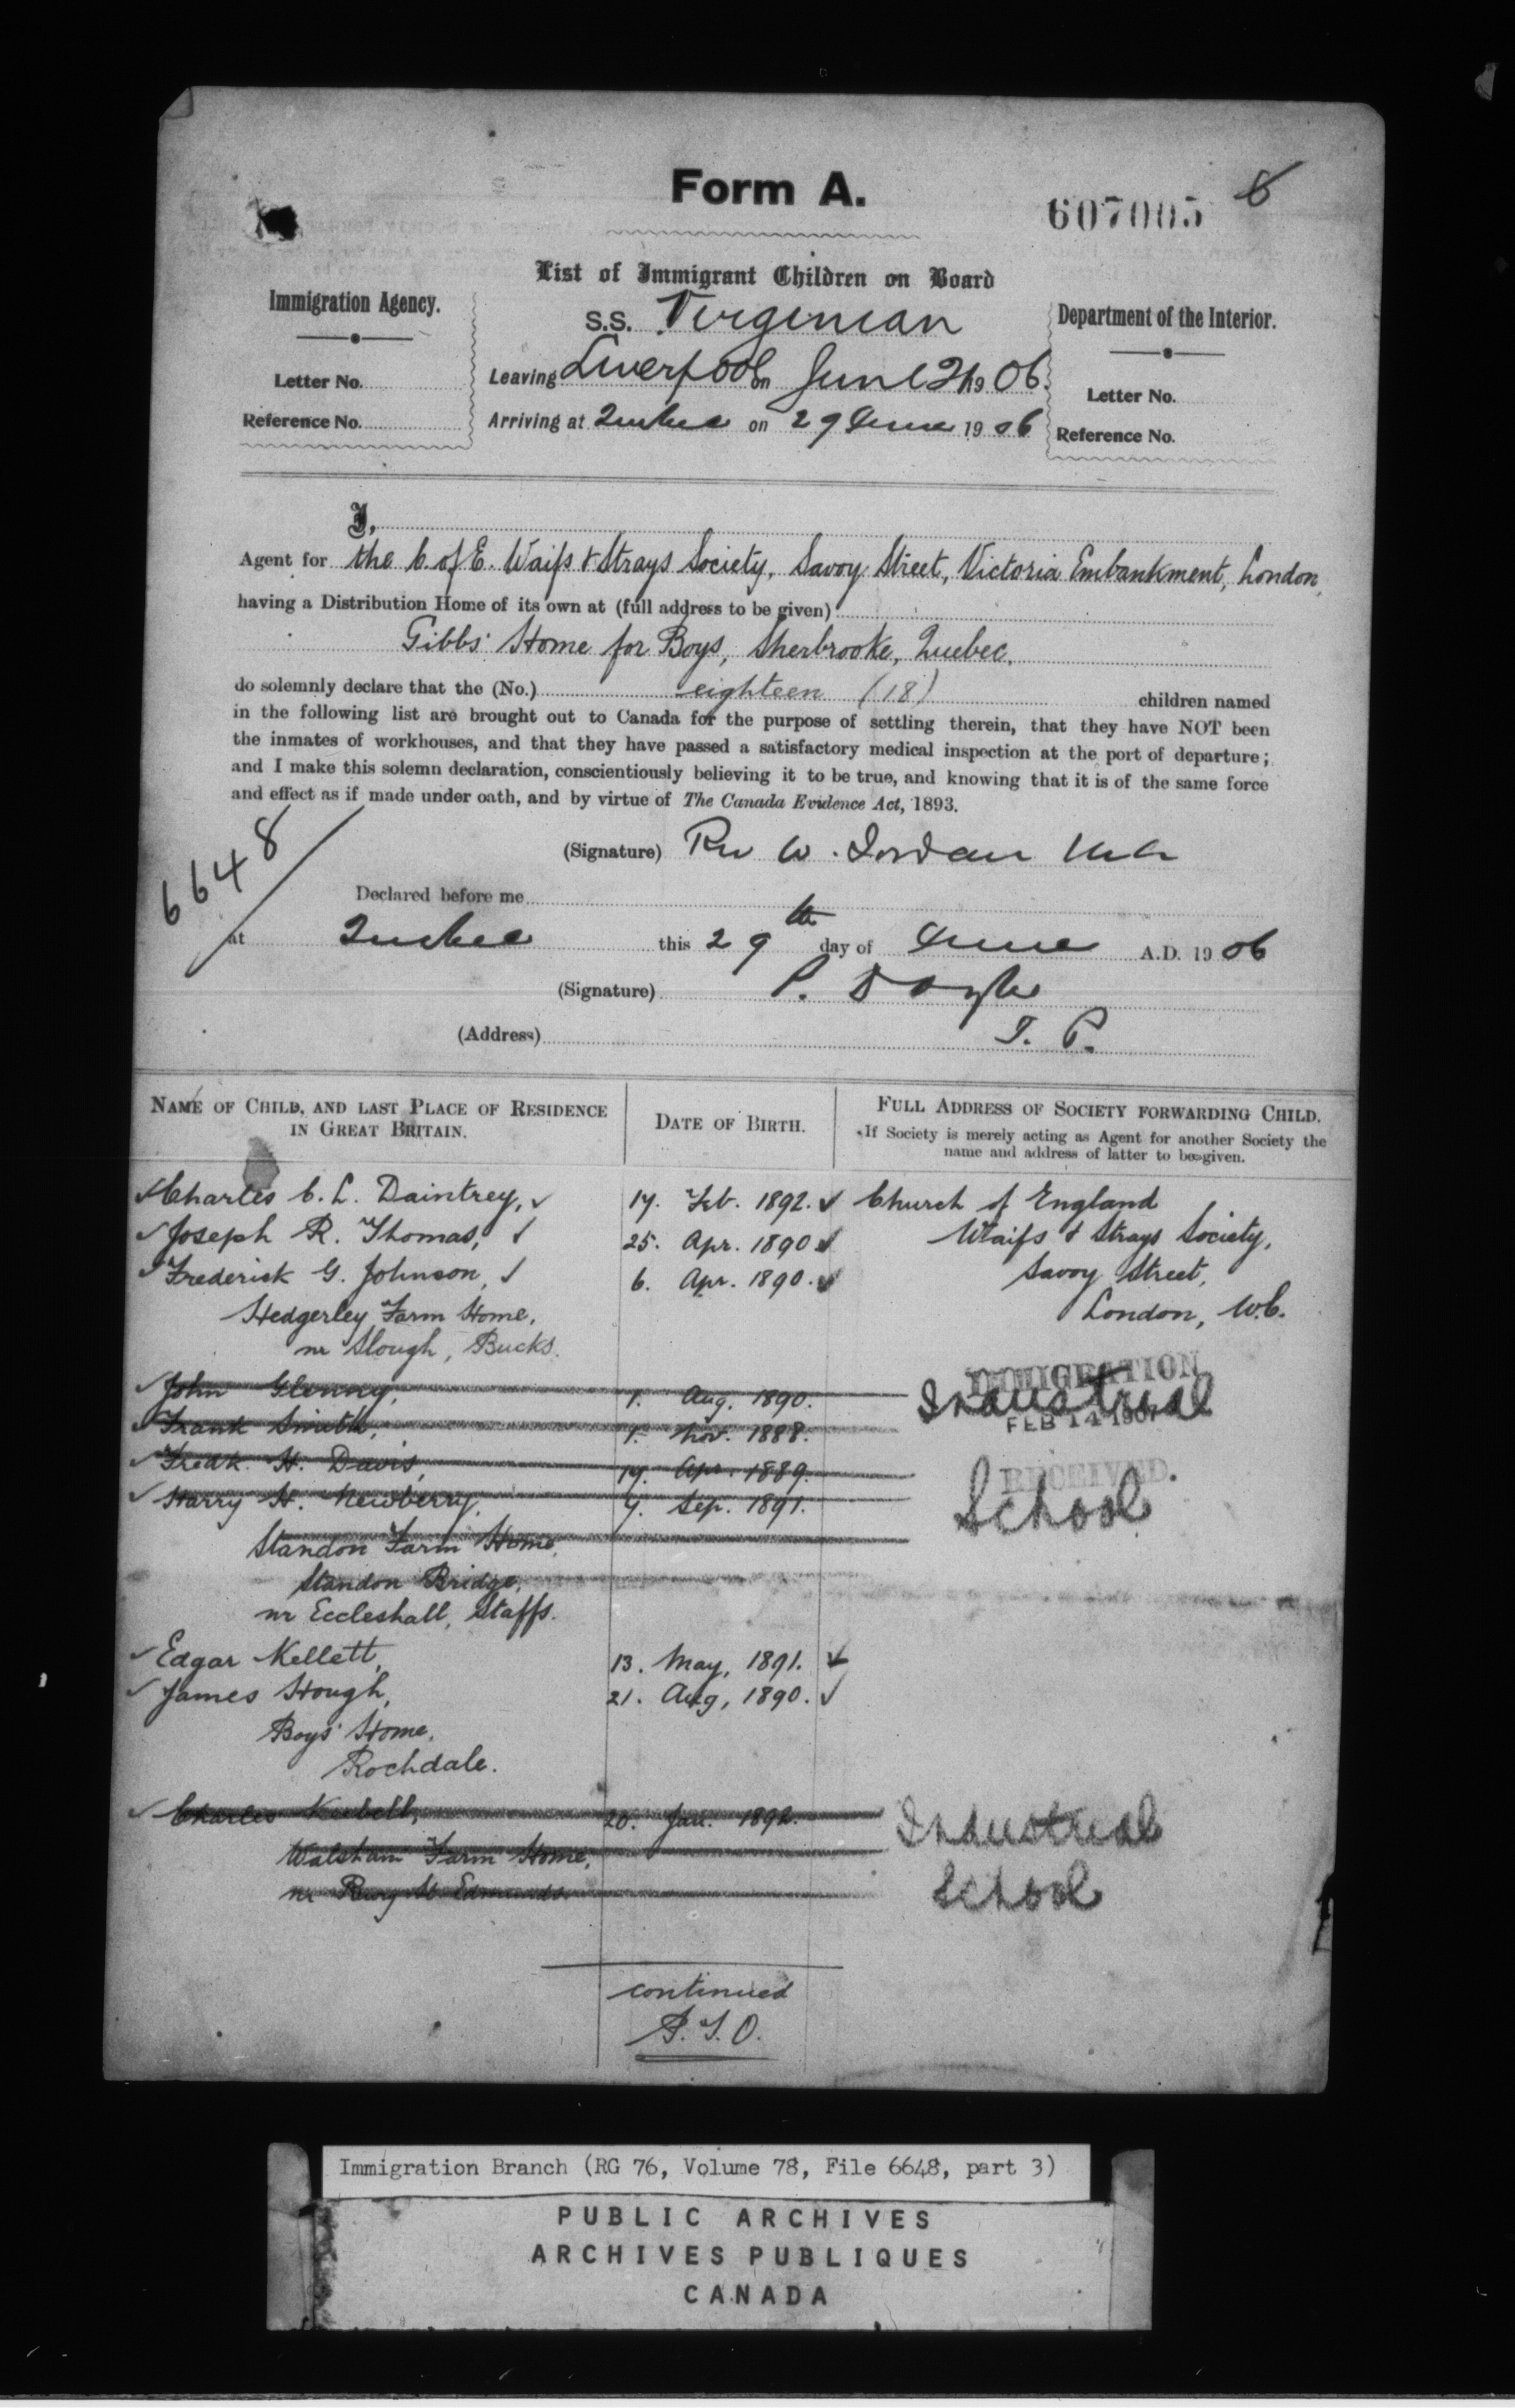 Form A.
607005
List of Immigrant Children on Board
Immigration Agency.
S.S. Virginian
Department of the Interior.
Letter No.
Leaving Liverpool on June 21 1906.
Letter No.
Reference No.
Arriving at Quebec on 29 June 1906
Reference No.
I,
Agent for the C. of E. Waifs & Strays Society, Savoy Street, Victoria Embankment, London,
having a Distribution Home of its own at (full address to be given)
Gibbs' Home for Boys, Sherbrooke, Quebec.
do solemnly declare that the (No.) eighteen (18) children named
in the following list are brought out to Canada for the purpose of settling therein, that they have NOT been
the inmates of workhouses, and that they have passed a satisfactory medical inspection at the port of departure;
and I make this solemn declaration, conscientiously believing it to be true, and knowing that it is of the same force
and effect as if made under oath, and by virtue of The Canada Evidence Act, 1893.
6648
(Signature) Rev W. Jordan
Declared before me
at Quebec this 29th day of June A.D. 1906
(Signature) P. Doyle
(Address) J. P.
NAME OF CHILD, AND LAST PLACE OF RESIDENCE
IN GREAT BRITAIN.
DATE OF BIRTH.
FULL ADDRESS OF SOCIETY FORWARDING CHILD.
If Society is merely acting as Agent for another Society the
name and address of latter to be given.
Charles C. L. Daintrey, 17. Feb. 1892. Church of England
Joseph R. Thomas, 25. Apr. 1890 Waifs & Strays Society,
Frederick G. Johnson, 6. Apr. 1890. Savoy Street,
Hedgerley Farm Home, London, W.C.
nr Slough, Bucks.
IMMIGRATION
John Glenny, 1. Aug. 1890. Industrial
FEB 14 1907
Frank Smith, 1. Nov. 1888.
Fredk. H. Davis, 17. Apr. 1889.
RECEIVED.
Harry H. Newberry, 7. Sep. 1891. School
Standon Farm Home,
Standon Bridge,
nr Eccleshall, Staffs.
Edgar Kellett, 13. May, 1891.
James Hough, 21. Aug, 1890.
Boys' Home,
Rochdale.
Charles 20. Jan. 1892. Industrial
Walsham Farm Home,
nr Bury St. Edmunds. School
continued
P.T.O.
Immigration Branch (RG 76, Volume 78, File 6648, part 3)
PUBLIC ARCHIVES
ARCHIVES PUBLIQUES
CANADA